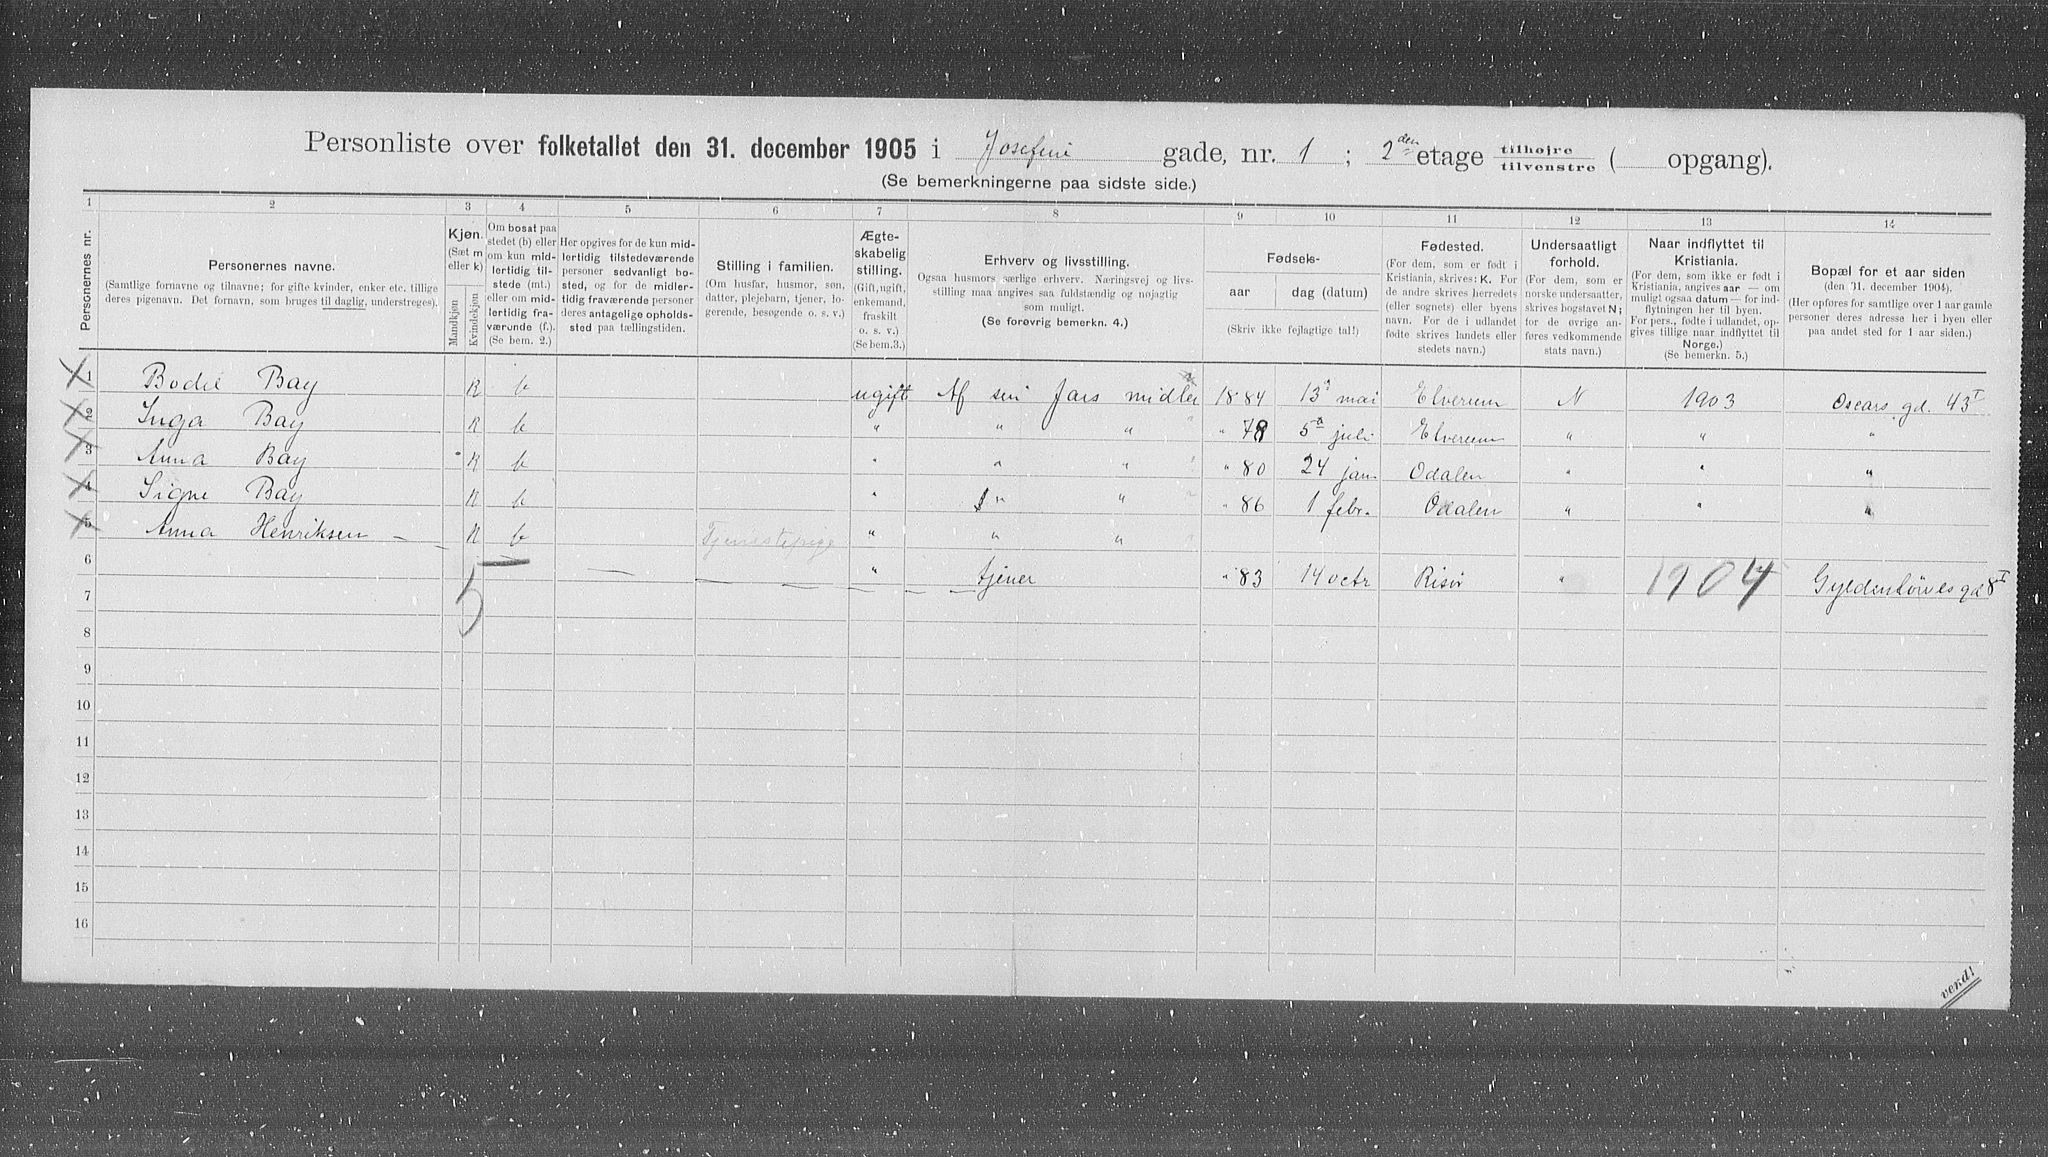 Personliste over folketallet den 31. december 1905 i Josefine gade, nr. 1 ; 2den etage tilhøjre tilvenstre ( opgang).
(Se bemerkningerne paa sidste side.)
1 2 3 4 5 6 7 8 9 10 11 12 13 14
Personernes nr.
Personernes navne.
(Samtlige fornavne og tilnavne; for gifte kvinder, enker etc. tillige
deres pigenavn. Det fornavn, som bruges til daglig, understreges).
Kjøn.
(Sæt m
eller k)
Mandkjøn
Kvindekjøn
Om bosat paa
stedet (b) eller
om kun mid-
lertidig til-
stede (mt.)
eller om mid-
lertidig fra-
værende (f.).
(Se bem. 2.)
Her opgives for de kun mid-
lertidig tilstedeværende
personer sedvanligt bo-
sted, og for de midler-
tidig fraværende personer
deres antagelige opholds-
sted paa tællingstiden.
Stilling i familien.
(Om husfar, husmor, søn,
datter, plejebarn, tjener, lo-
gerende, besøgende o. s. v.)
Ægte-
skabelig
stilling.
(Gift, ugift,
enkemand,
fraskilt
o. s. v.)
(Se bem.3.)
Erhverv og livsstilling.
Ogsaa husmors særlige erhverv. Næringsvej og livs-
stilling maa angives saa fuldstændig og nøjagtig
som muligt.
(Se forøvrig bemerkn. 4.)
Fødsels-
aar
dag (datum)
(Skriv ikke fejlagtige tal!)
Fødested.
(For dem, som er født i
Kristiania, skrives: K. For
de andre skrives herredets
(eller sognets) eller byens
navn. For de i udlandet
fødte skrives landets eller
stedets navn.)
Undersaatligt
forhold.
(For dem, som er
norske undersaatter,
skrives bogstavet N;
for de øvrige an-
føres vedkommende
stats navn.)
Naar indflyttet til
Kristiania.
(For dem, som ikke er født i
Kristiania, angives aar — om
muligt ogsaa datum — for ind-
flytningen her til byen.
For pers., fødte i udlandet, op-
gives tillige naar indflyttet til
Norge.)
(Se bemerkn. 5.)
Bopæl for et aar siden
(den 31. december 1904).
(Her opføres for samtlige over 1 aar gamle
personer deres adresse her i byen eller
paa andet sted for 1 aar siden.)
1 Bodil Bay K b ugift Af sin Fars midler 1884 13 mai Elverum N 1903 Oscars gd. 43 I
2 Inga Bay K b " " " " 78 5 juli Elverum " " "
3 Anna Bay K b " " " " 80 24 jan Odalen " " "
4 Signe Bay K b " " " " 86 1 febr. Odalen " " "
5 Anna Henriksen K b Tjenestepige " " "
6 5 " tjener " 83 14 octr Risør " 1904 Gyldenløves gd 8 I
7
8
9
10
11
12
13
14
15
16
vend!